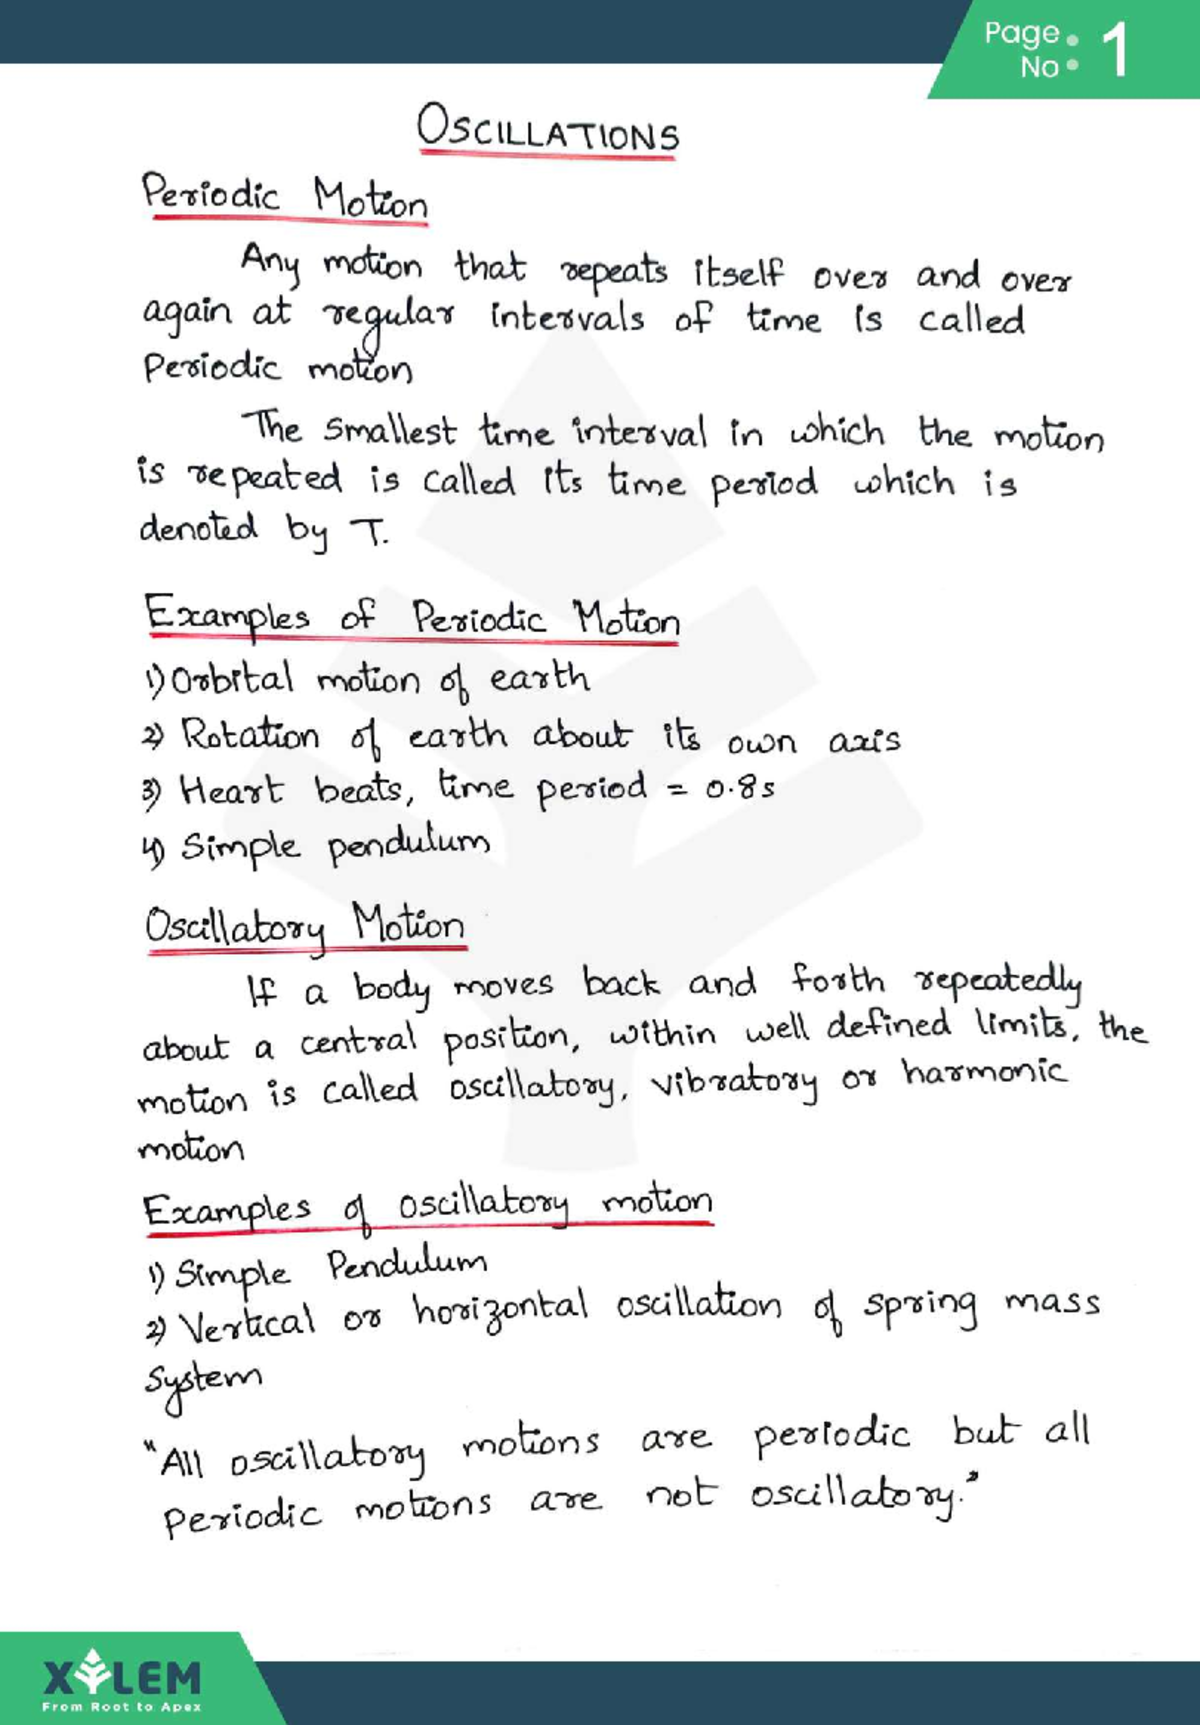 Page
No : 1
OSCILLATIONS
Periodic Motion
Any motion that repeats itself over and over
again at regular intervals of time is called
Periodic motion
The smallest time interval in which the motion
is repeated is called its time period which is
denoted by T.
Examples of Periodic Motion
1) Orbital motion of earth
2) Rotation of earth about its own axis
3) Heart beats, time period = 0.8s
4) Simple pendulum
Oscillatory Motion
If a body moves back and forth repeatedly
about a central position, within well defined limits, the
motion is called oscillatory, vibratory or harmonic
motion
Examples of oscillatory motion
1) Simple Pendulum
2) Vertical or horizontal oscillation of spring mass
System
"All oscillatory motions are periodic but all
Periodic motions are not oscillatory."
XYLEM
From Root to Apex